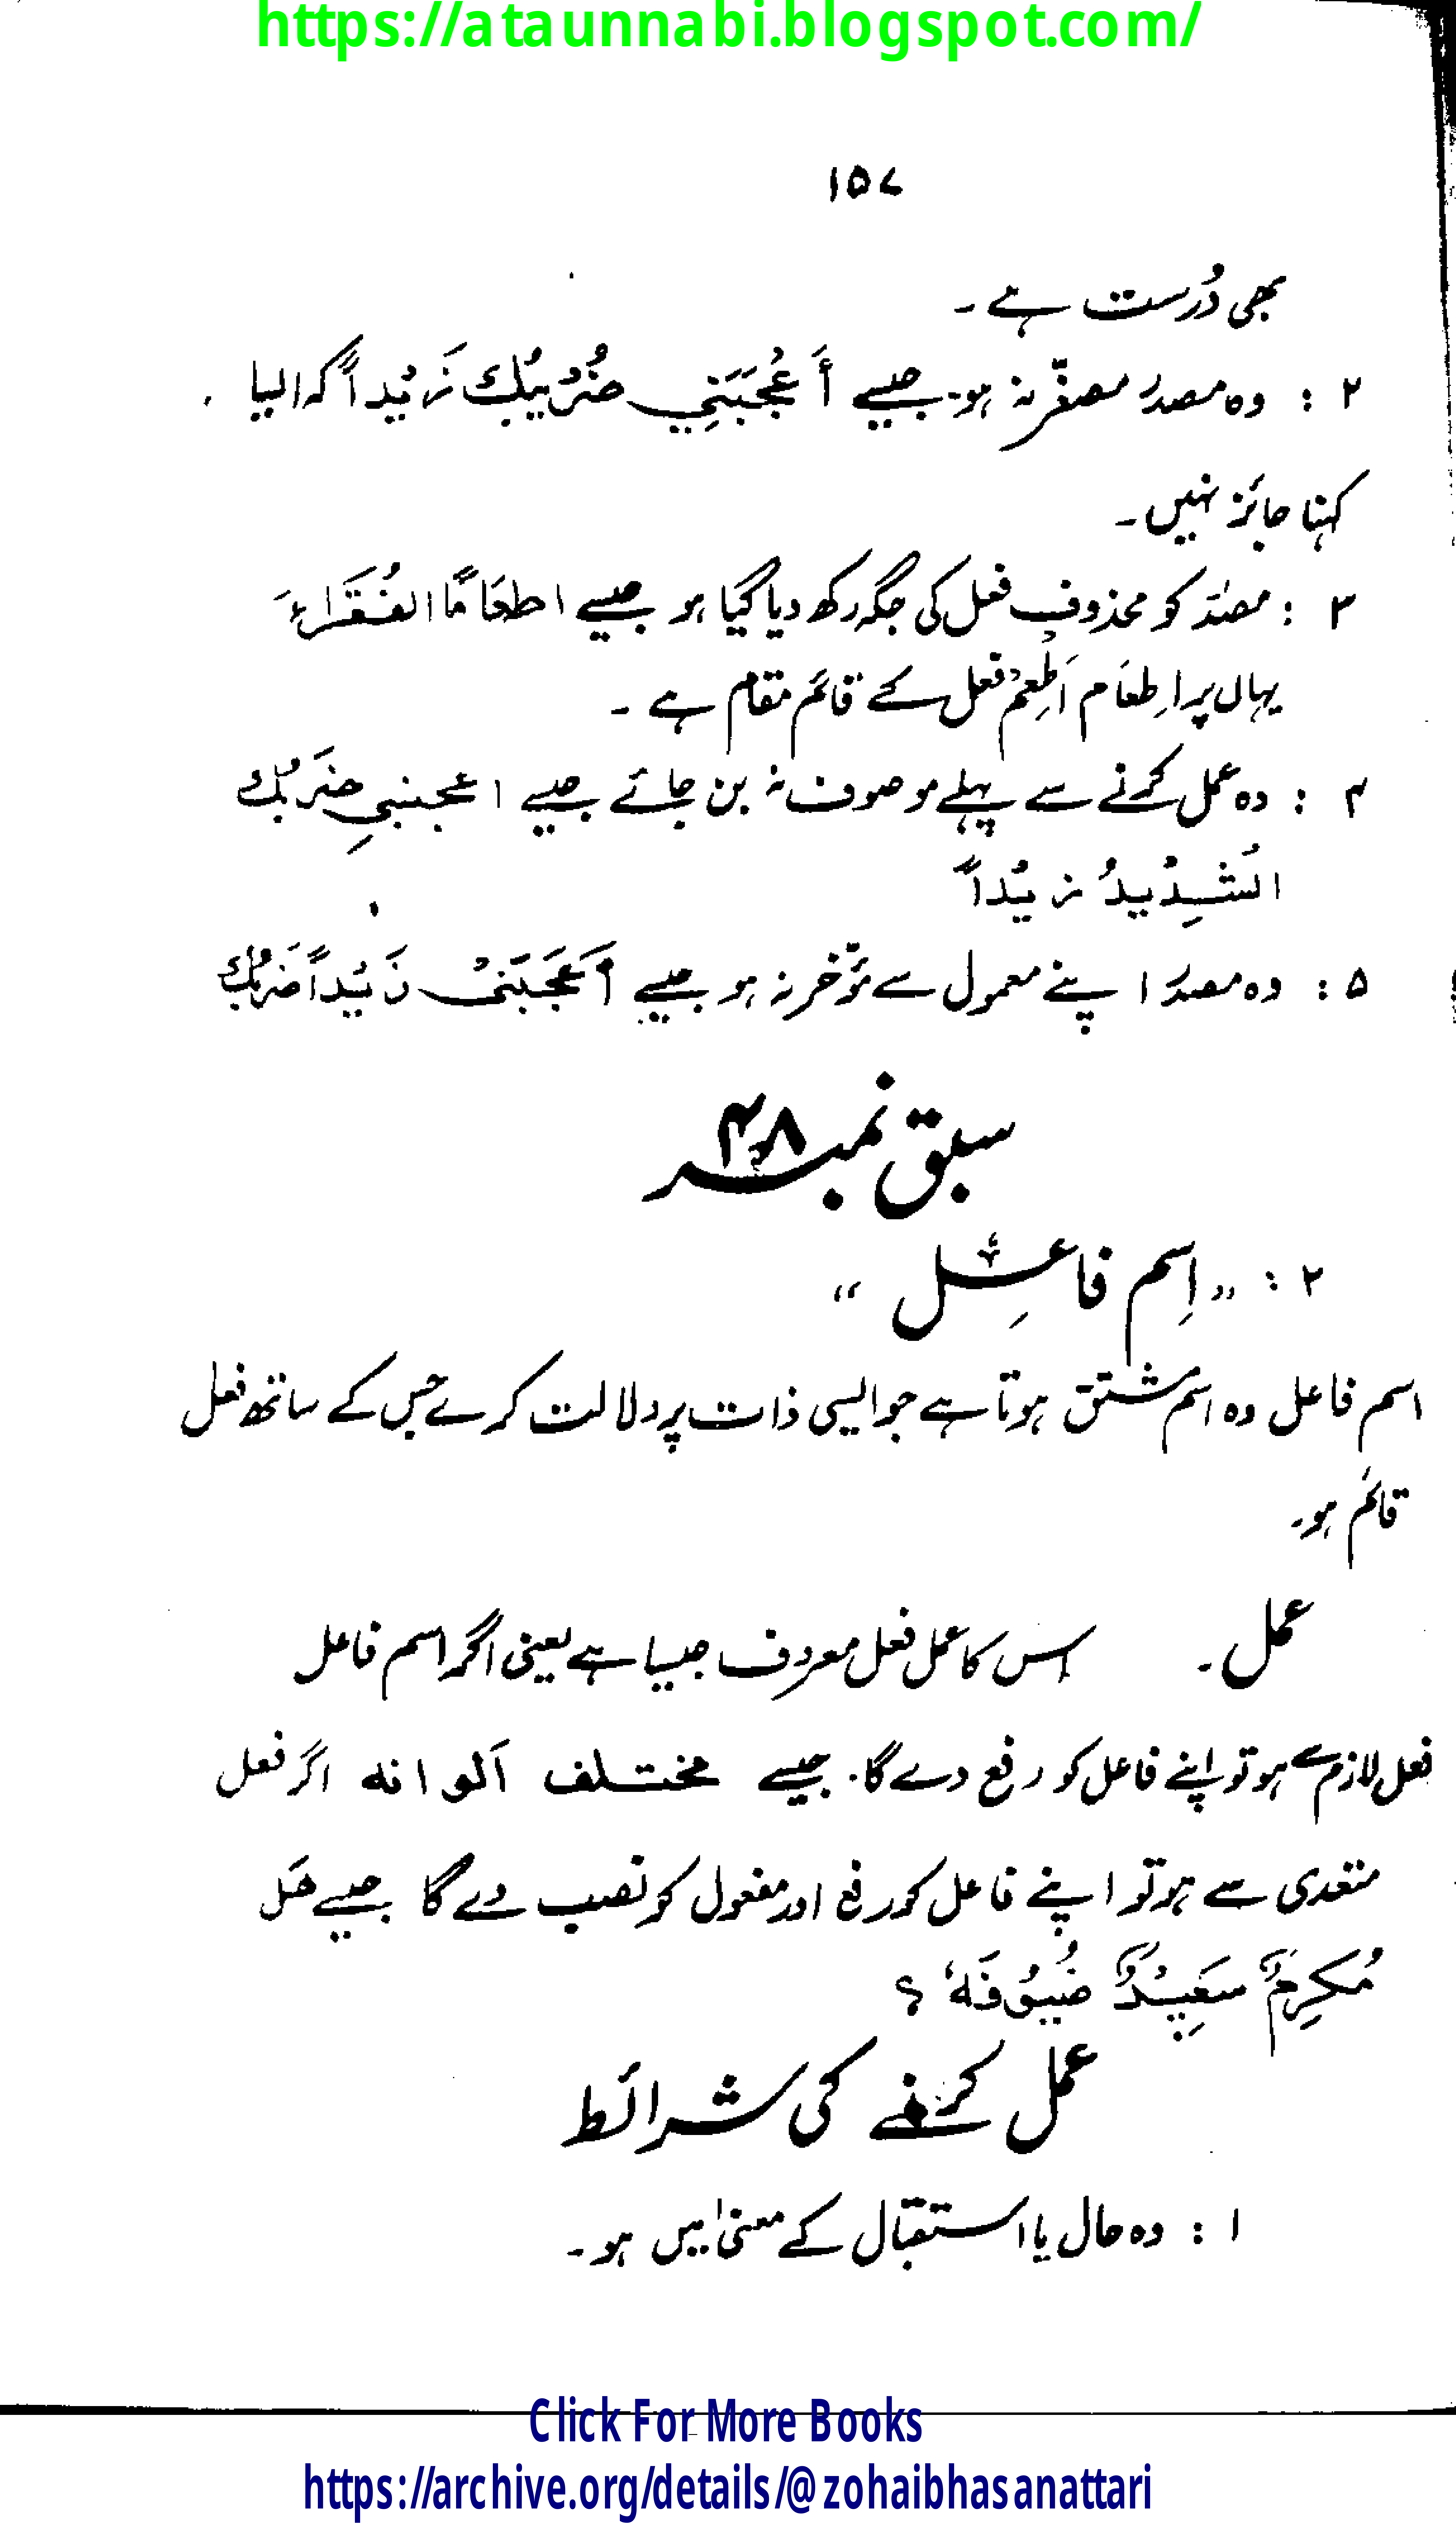 https://ataunnabi.blogspot.com/
۱۵۷
بھی دُرست ہے ۔
۲ : وہ مصدر مصغّر نہ ہو۔ جیسے أَعْجَبَنِي ضُرْيْبُكَ زَيْداً کہ ایسا
کہنا جائز نہیں ۔
۳ : مصدر کو محذوف فعل کی جگہ رکھ دیا گیا ہو جیسے اطعَامًا الفُقَرَاءَ
یہاں پر اِطعَام اَطْعِمْ فعل کے قائم مقام ہے ۔
۴ : وہ عمل کرنے سے پہلے موصوف نہ بن جائے جیسے اعجبنیِ ضَرْبُكَ
الشَدِيْدُ زيْداً
۵ : وہ مصدر اپنے معمول سے مؤخر نہ ہو جیسے أَعْجَبَنِىْ زَيْداً ضَرْبُكَ
سبق نمبر ۴۸
۲ : ,, اِسم فاعِل ،،
اسم فاعل وہ اسم مشتق ہوتا ہے جو ایسی ذات پر دلالت کرے جس کے ساتھ فعل
قائم ہو۔
عمل ۔ اس کا عمل فعل معروف جیسا ہے یعنی اگر اسم فاعل
فعل لازم سے ہو تو اپنے فاعل کو رفع دے گا۔ جیسے مختلف اَلوانه اگر فعل
متعدی سے ہو تو اپنے فاعل کو رفع اور مفعول کو نصب دے گا جیسے هَل
مُكرِمٌ سَعِيْدٌ ضُيُوْفَهٗ ؟
عمل کرنے کی شرائط
۱ : وہ حال یا استقبال کے معنیٰ میں ہو ۔
Click For More Books
https://archive.org/details/@zohaibhasanattari